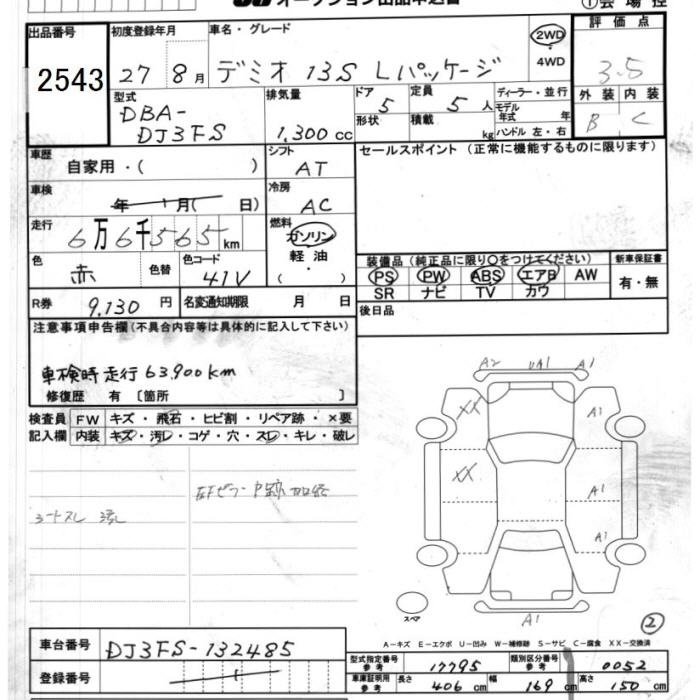 オークション出品申込書
①会場控
出品番号 初度登録年月 車名・グレード 2WD 評価点
2543 27 8月 デミオ 13S Lパッケージ 4WD 3.5
型式 排気量 ドア 定員 ディーラー・並行 外装 内装
DBA-DJ3FS 1,300cc 5 5人 モデル年式 年 B C
形状 積載 kg ハンドル 左・右
車歴 自家用・( ) シフト AT セールスポイント (正常に機能するものに限ります)
車検 年 月( 日) 冷房 AC
走行 6万6千565km 燃料 ガソリン 軽油 ( )
色 赤 色替 色コード 41V
装備品(純正品に限り○をつけてください) 新車保証書
PS PW ABS エアB AW 有・無
SR ナビ TV カワ
R券 9,130円 名変通知期限 月 日 後日品
注意事項申告欄(不具合内容等は具体的に記入して下さい)
車検時走行63,900km
修復歴 有 [箇所 ]
検査員 FW キズ・飛石・ヒビ割・リペア跡・×要
記入欄 内装 キズ・汚レ・コゲ・穴・スレ・キレ・破レ
シートスレ
A2 UA1 A1
XX A1
XX A1
A1
スペア A1
②
A-キズ E-エクボ U-凹み W-補修跡 S-サビ C-腐食 XX-交換済
車台番号 DJ3FS-132485
登録番号
型式指定番号 参考 17795 類別区分番号 参考 0052
車庫証明用 参考 長さ 406cm 幅 169cm 高さ 150cm